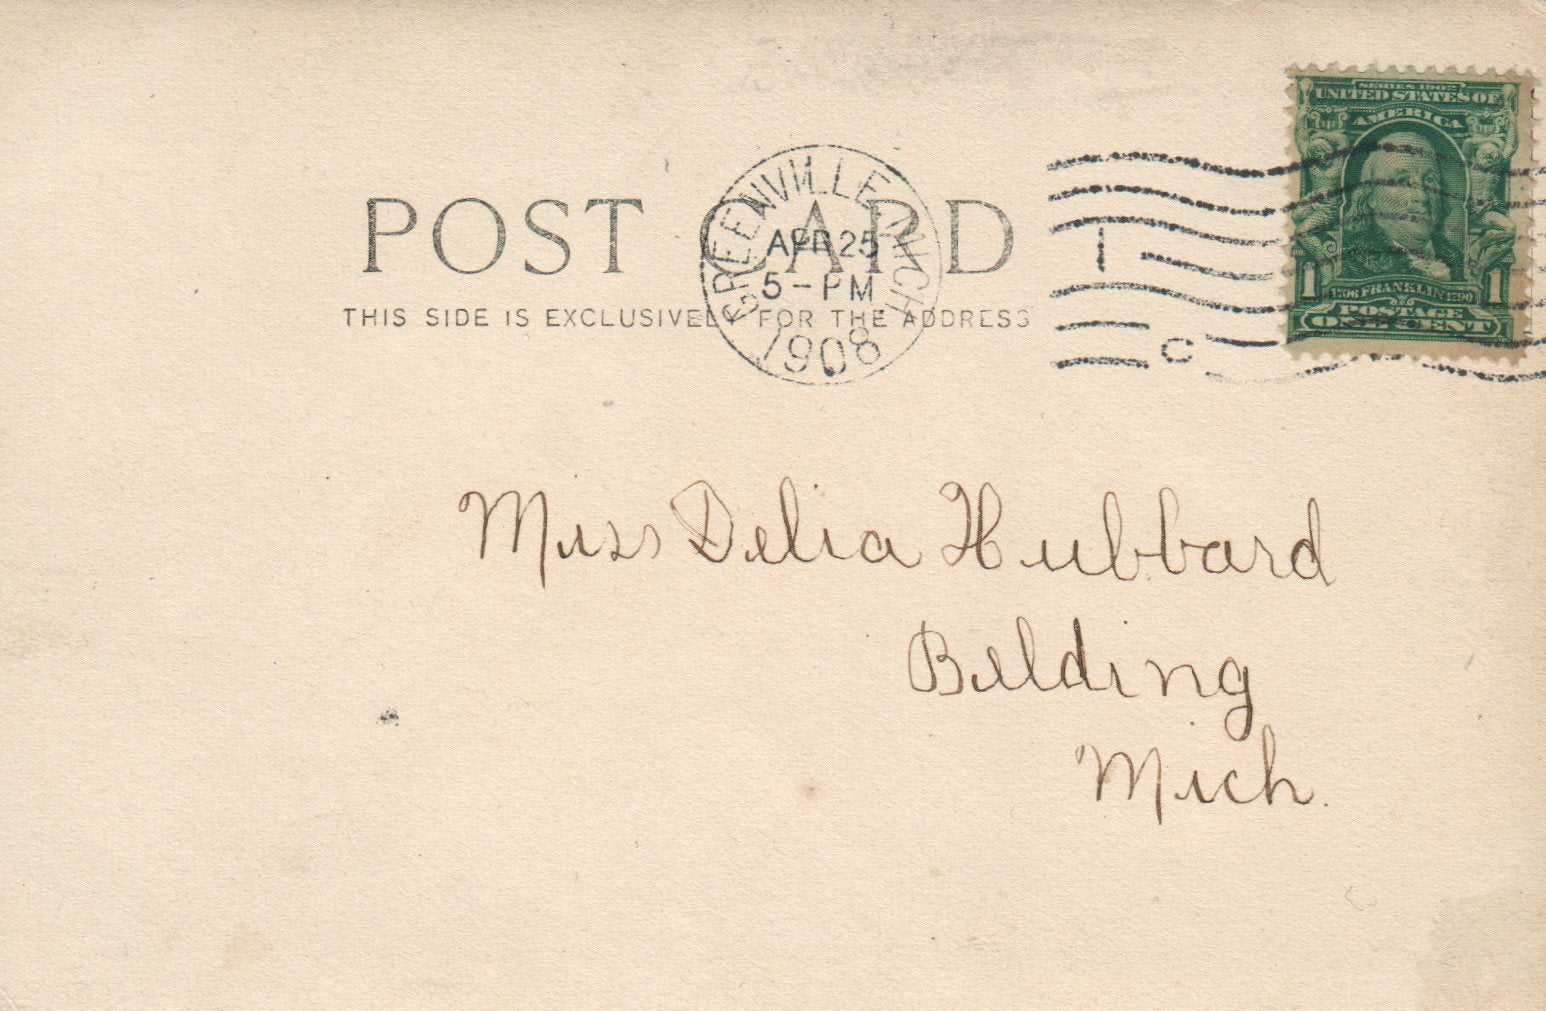 SERIES 1902
UNITED STATES OF
AMERICA
1706 FRANKLIN 1790
1 1
POSTAGE
ONE CENT
GREENVILLE MICH
APR 25
5-PM
1908
I
C
POST CARD
THIS SIDE IS EXCLUSIVELY FOR THE ADDRESS
Miss Delia Hubbard
Belding
Mich.